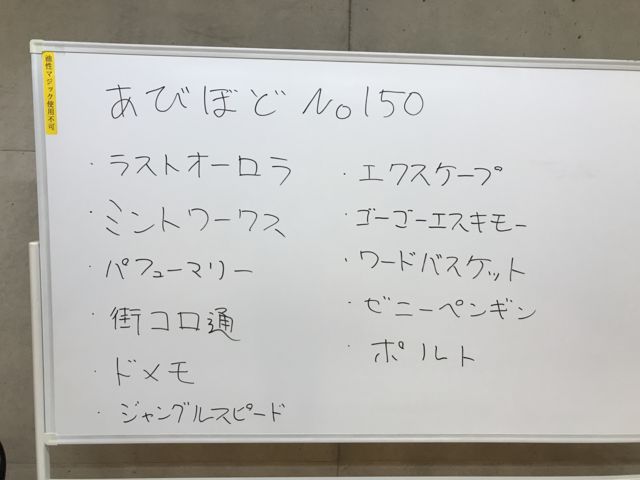 油性マジック使用不可
あびぼど No150
・ラストオーロラ
・ミントワークス
・パフューマリー
・街コロ通
・ドメモ
・ジャングルスピード
・エクスケープ
・ゴーゴーエスキモー
・ワードバスケット
・ゼニーペンギン
・ポルト